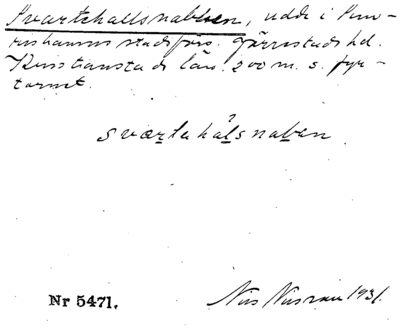 Svartehallsnabben, udde i Sim-
rishamns stadsförs. Järrestads hd.
Kristianstads län. 200 m. s. fyr-
tornet.
svartahålsnaben.
Nr 5471.
Nils 1931.